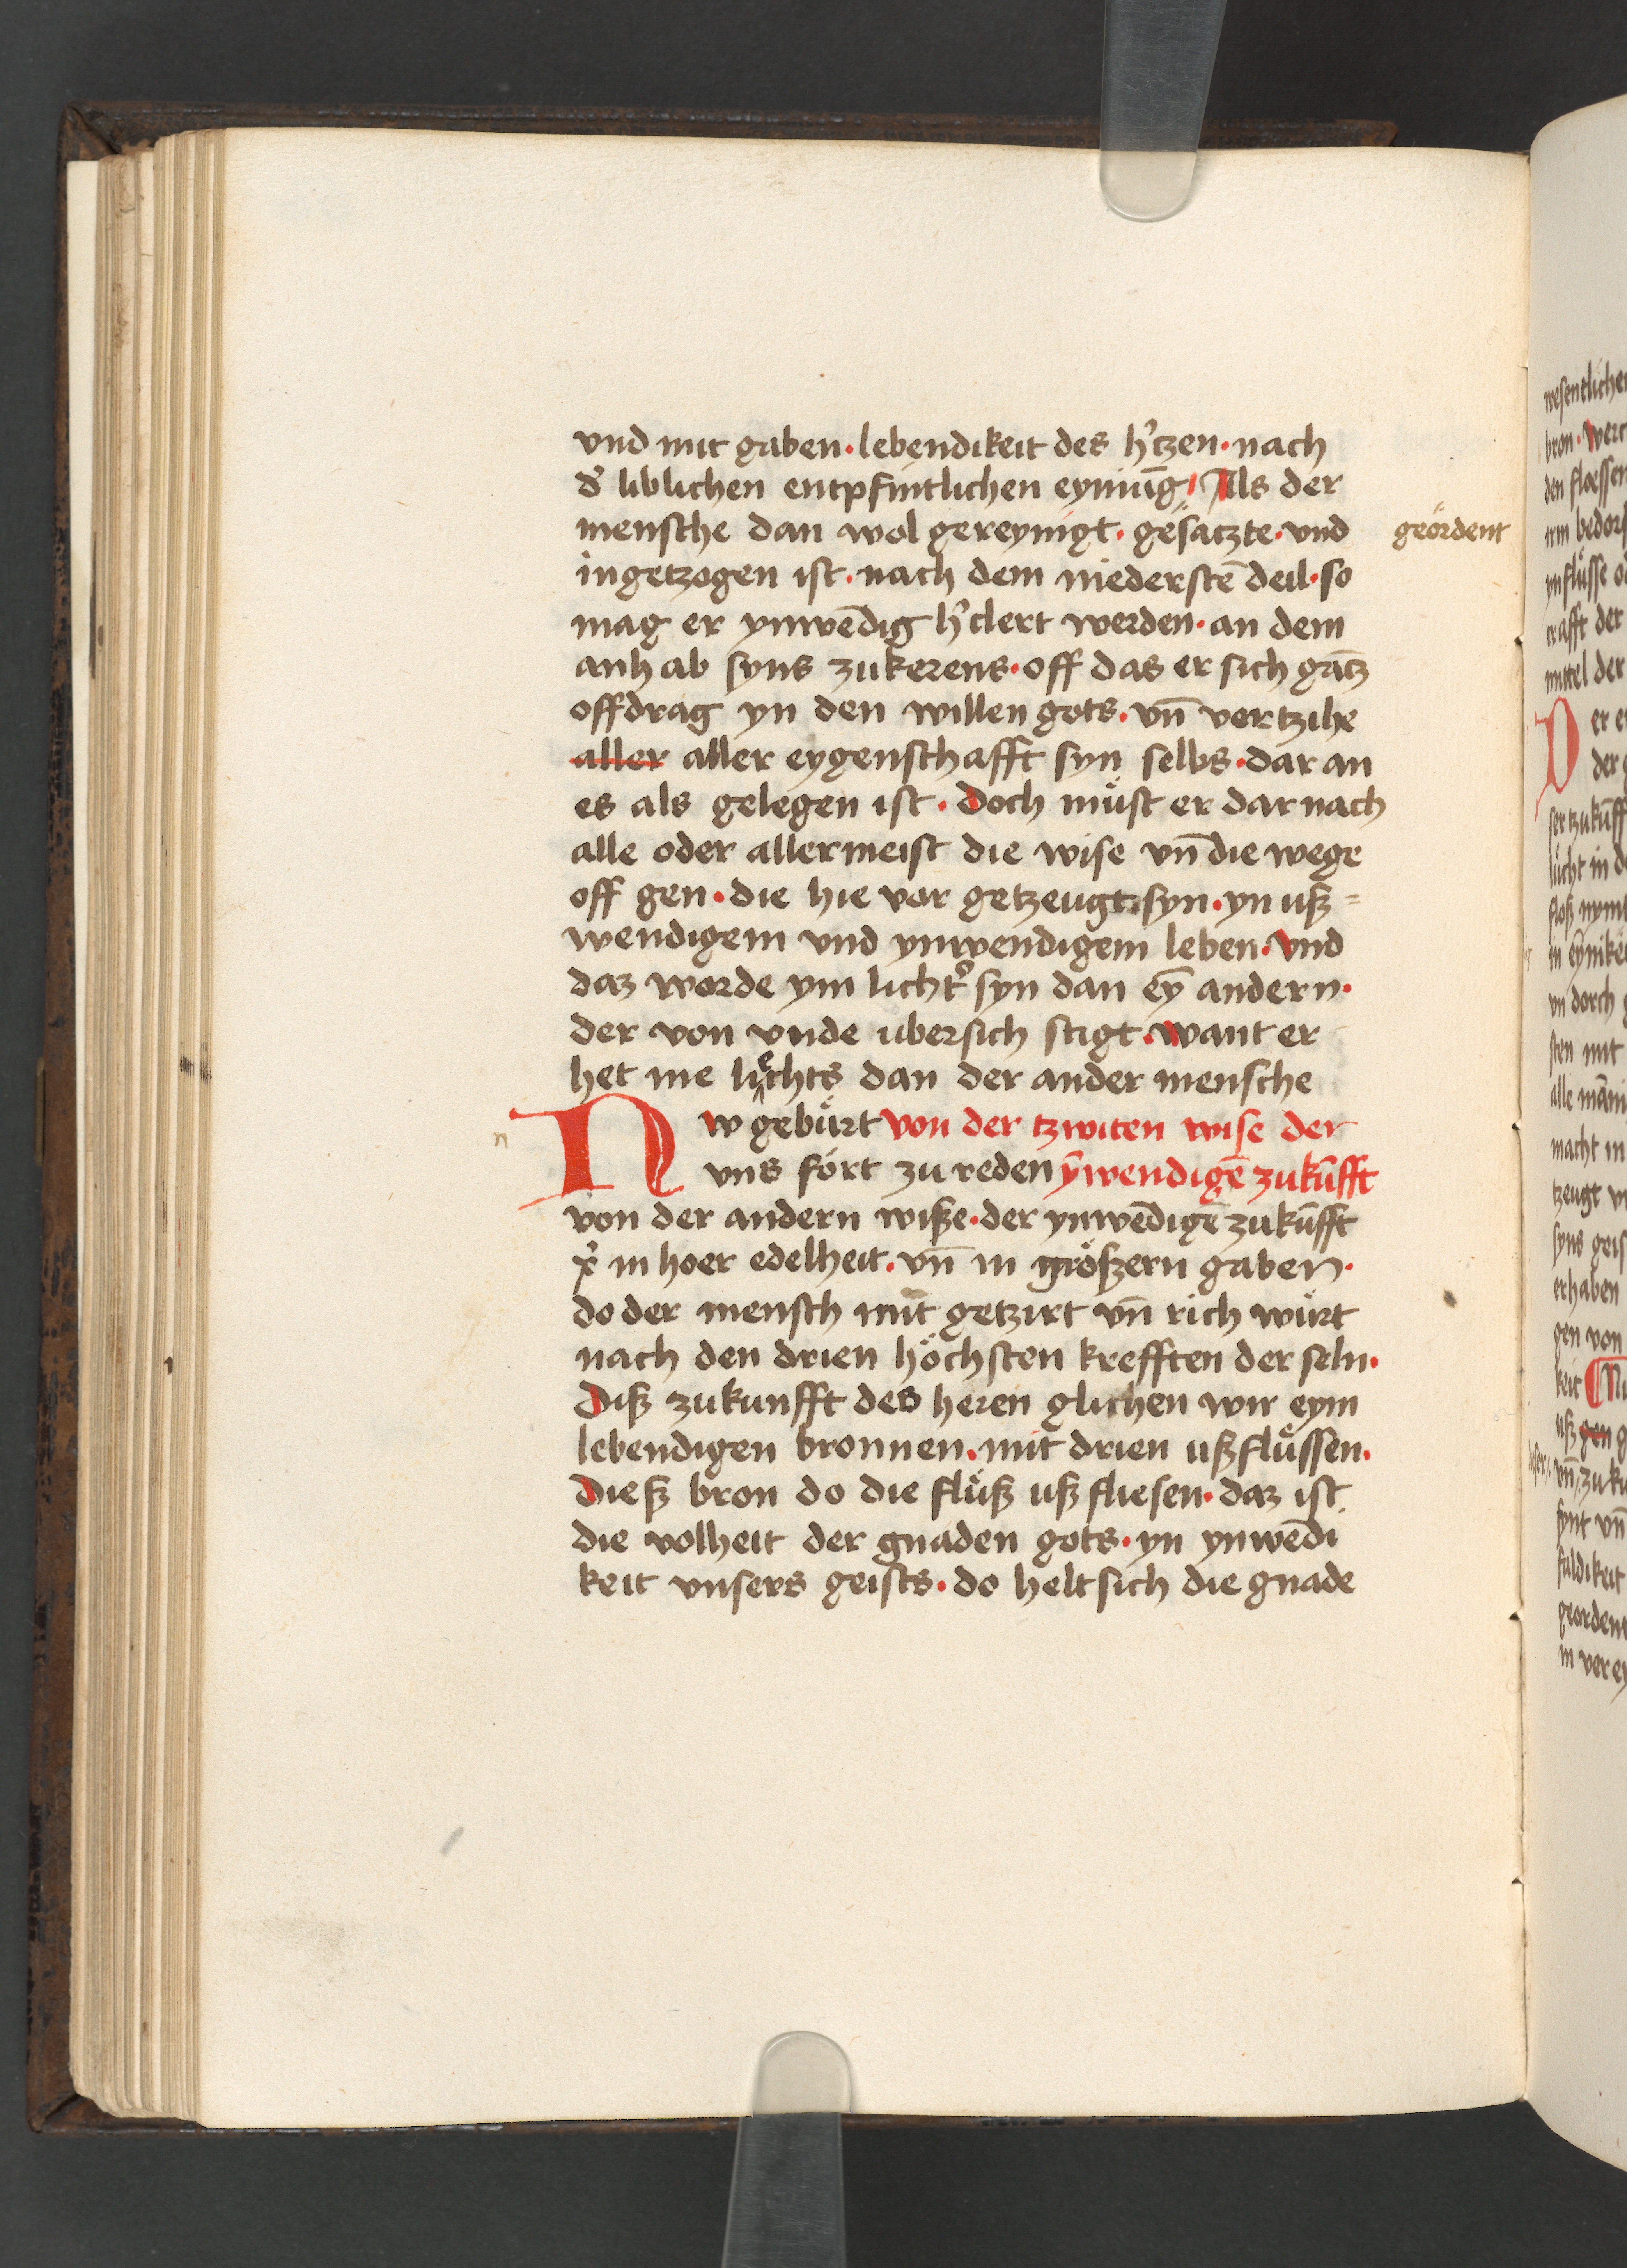 vnd mit gaben · lebendikeit des h'tzen · nach
d' liblichen entpfintlichen eynūg / Als der
mensche dan wol gereynigt · gesatzte · vnd
geördent
ingetzogen ist · nach dem niederstē deil · so
mag er ynwēdig h'clert werden · an dem
anhab syns zukerens · off das er sich gātz
offdrag yn den willen gots · vn̄ vertzihe
aller aller eygenschafft syn selbs · dar an
es als gelegen ist · doch müst er dar nach
alle oder allermeist die wise vn̄ die wege
off gen · die hie vor getzeugt syn · yn uß=
wendigem vnd ynwendigem leben · vnd
daz worde ym licht' syn dan eȳ andern ·
der von vnde ubersich stigt · want er
het me liechts dan der ander mensche
Nw gebürt von der tzwiten wise der
vns fört zu reden ȳwendigē zukūfft
von der andern wiße · der ynwēdigē zukūfft
x' in hoer edelheit · vn̄ in größern gaben ·
do der mensch mit getzirt vn̄ rich würt
nach den drien höchsten krefften der seln ·
Diß zukunfft des heren glichen wir eym
lebendigen bronnen · mit drien ußflüssen ·
Dieß bron do die flüß uß fliesen · daz ist
die volheit der gnaden gots · yn ynwēdi
keit vnsers geists · do helt sich die gnade